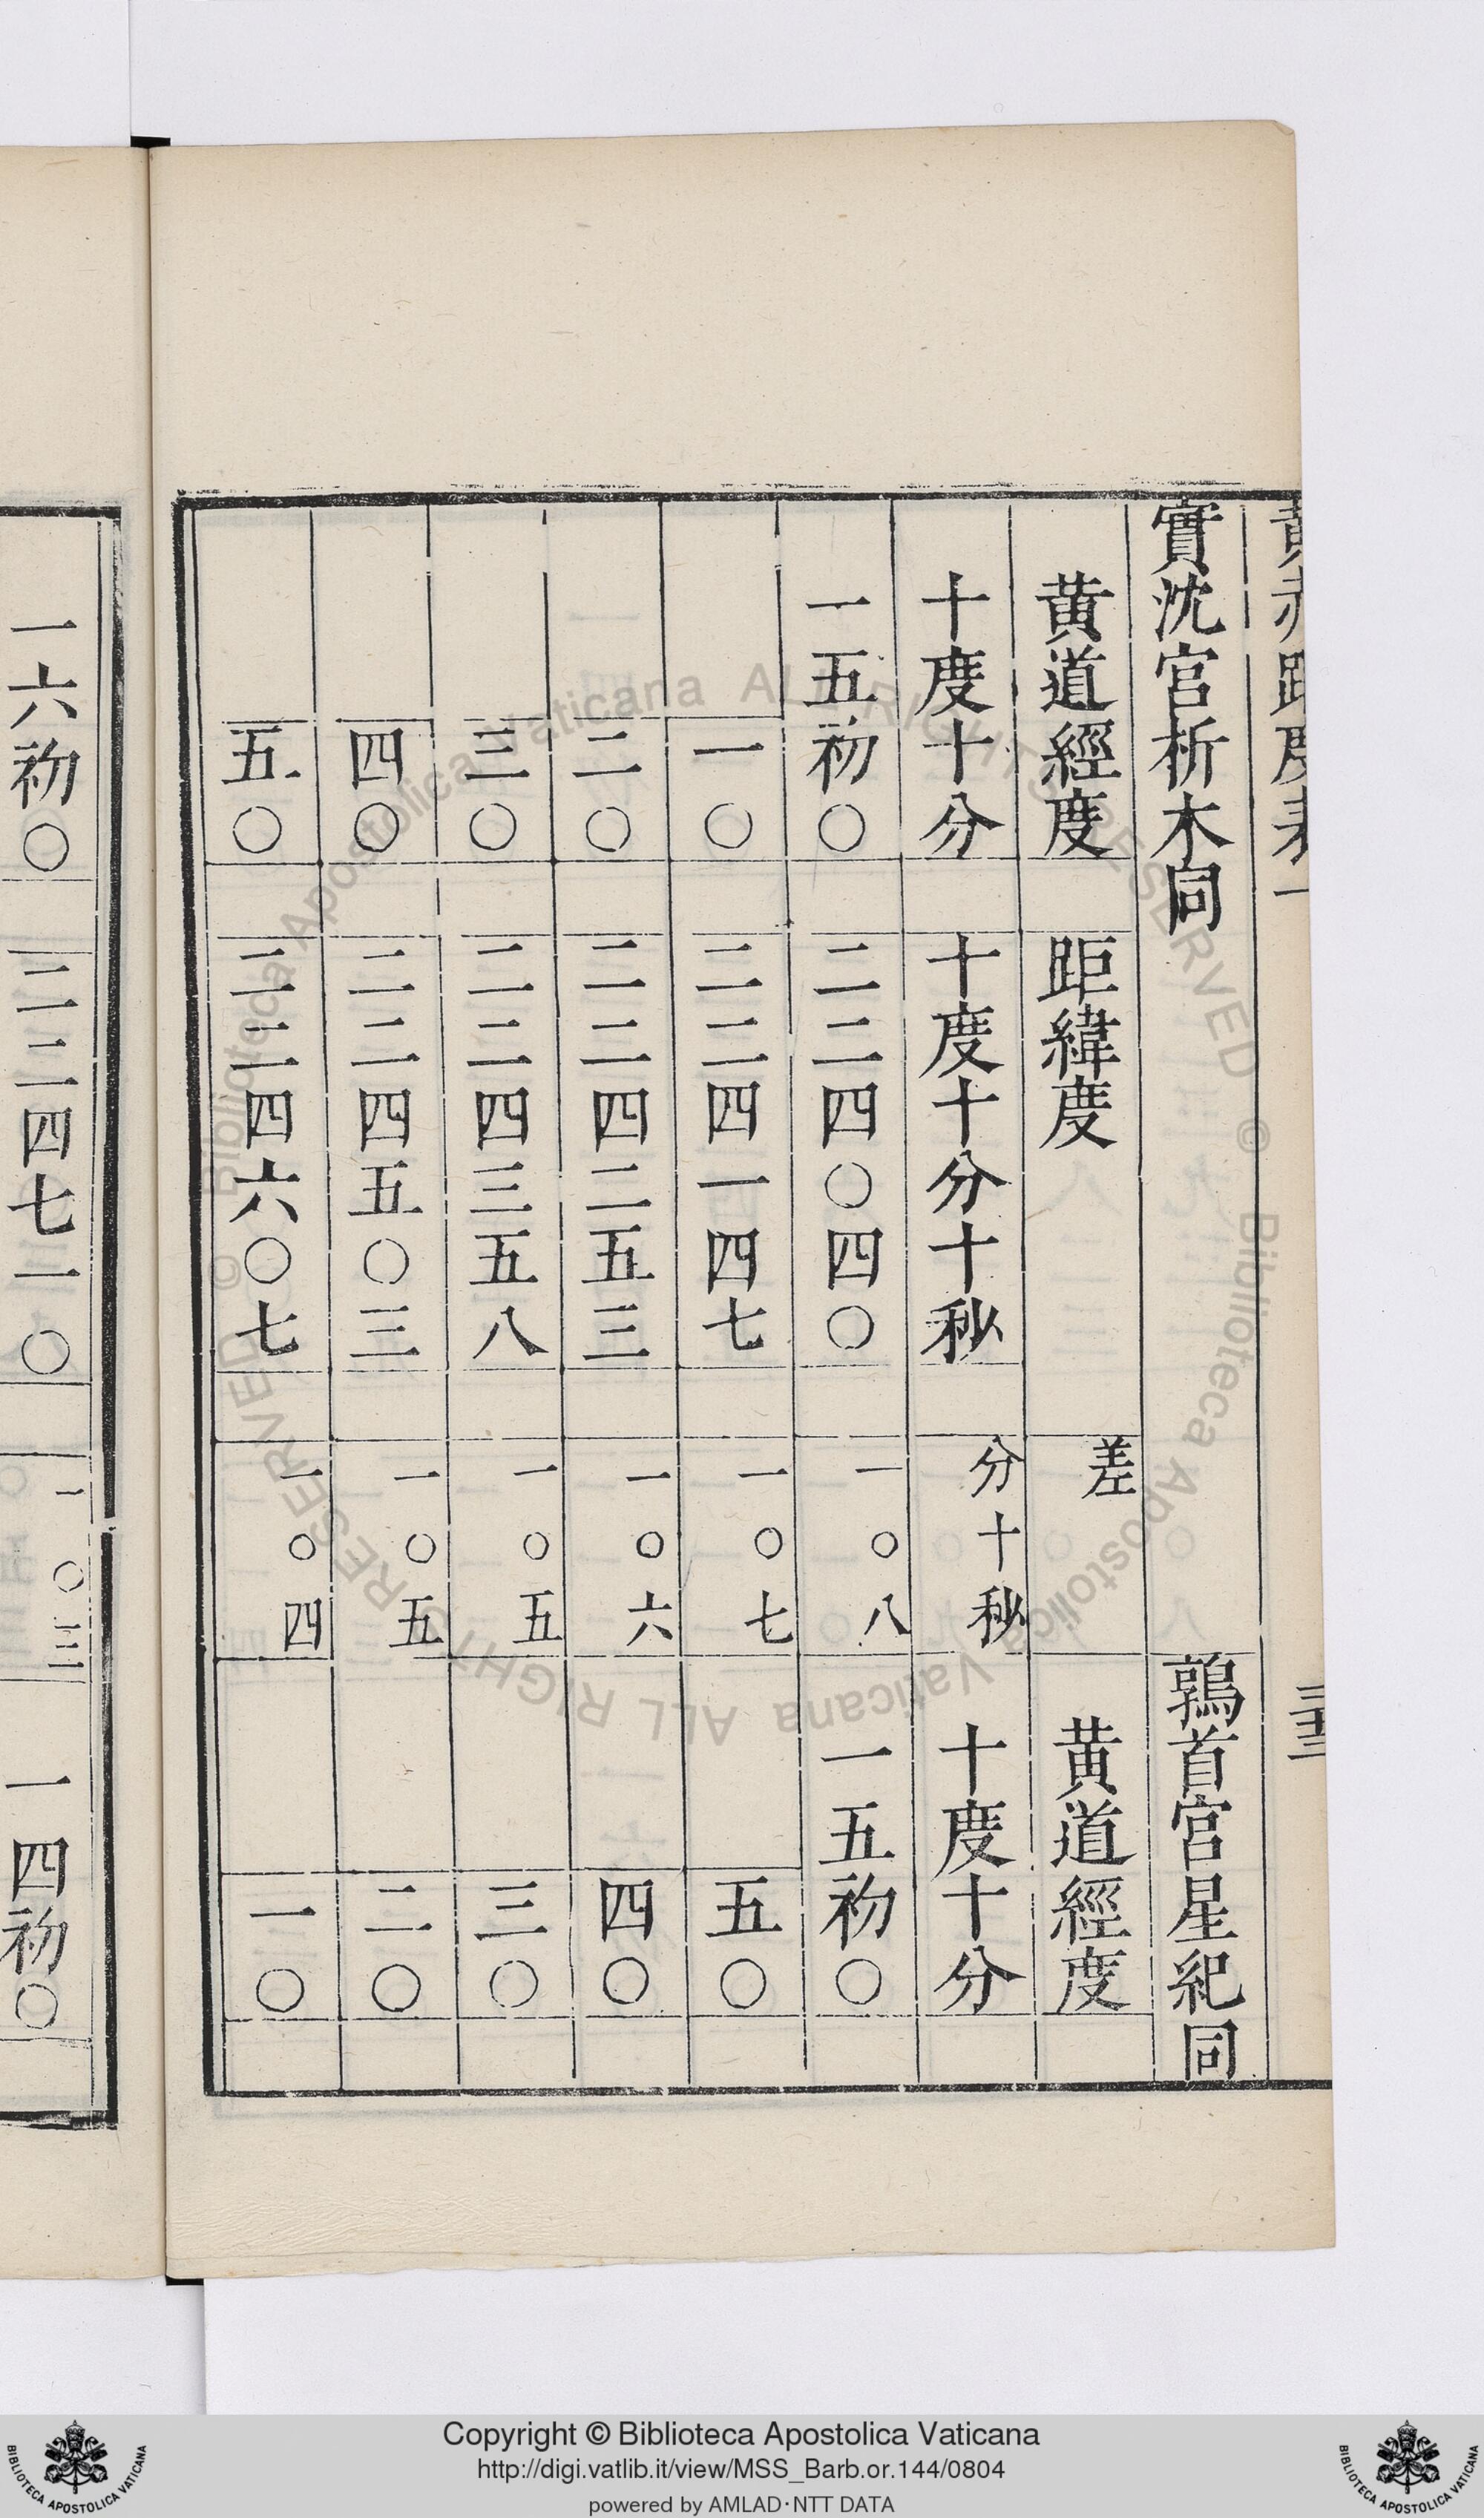 黄赤距度表一 三十三
實沈宮析木同 鶉首宮星紀同
黄道經度 距緯度 差 黄道經度
十度十分 十度十分十秒 分十秒 十度十分
一五初〇 二二四〇四〇 一〇八 一五初〇
一〇 二二四一四七 一〇七 五〇
二〇 二二四二五三 一〇六 四〇
三〇 二二四三五八 一〇五 三〇
四〇 二二四五〇三 一〇五 二〇
五〇 二二四六〇七 一〇四 一〇
一六初〇 二二四七一〇 一〇三 一四初〇
Copyright © Biblioteca Apostolica Vaticana
http://digi.vatlib.it/view/MSS_Barb.or.144/0804
powered by AMLAD·NTT DATA
BIBLIOTECA APOSTOLICA VATICANA
BIBLIOTECA APOSTOLICA VATICANA
© Biblioteca Apostolica Vaticana ALL RIGHTS RESERVED
© Biblioteca Apostolica Vaticana ALL RIGHTS RESERVED